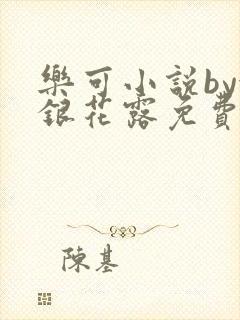 樂可小説by
銀花露免費
陳基